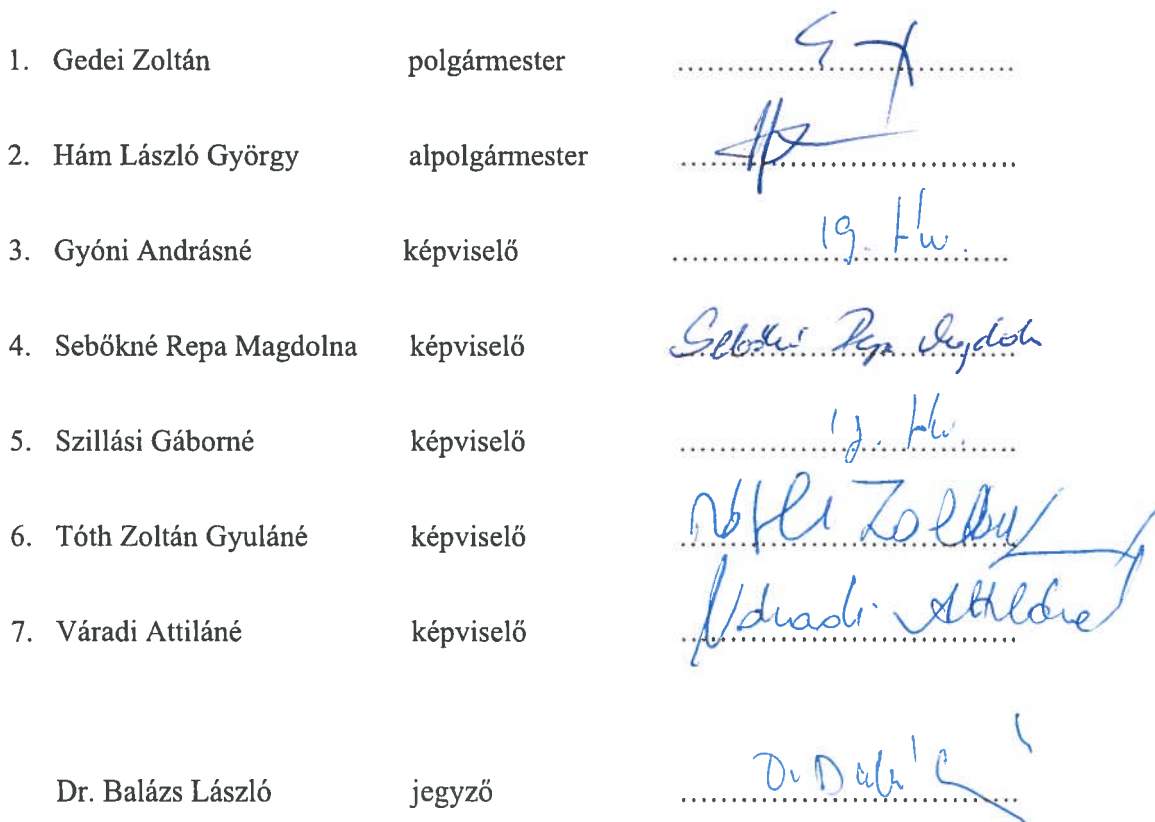 1. Gedei Zoltán polgármester
2. Hám László György alpolgármester
3. Gyóni Andrásné képviselő
4. Sebőkné Repa Magdolna képviselő Sebőkné Repa Magdoln
5. Szillási Gáborné képviselő
6. Tóth Zoltán Gyuláné képviselő Tóth Zoltán
7. Váradi Attiláné képviselő Váradi Attiláné
Dr. Balázs László jegyző Dr